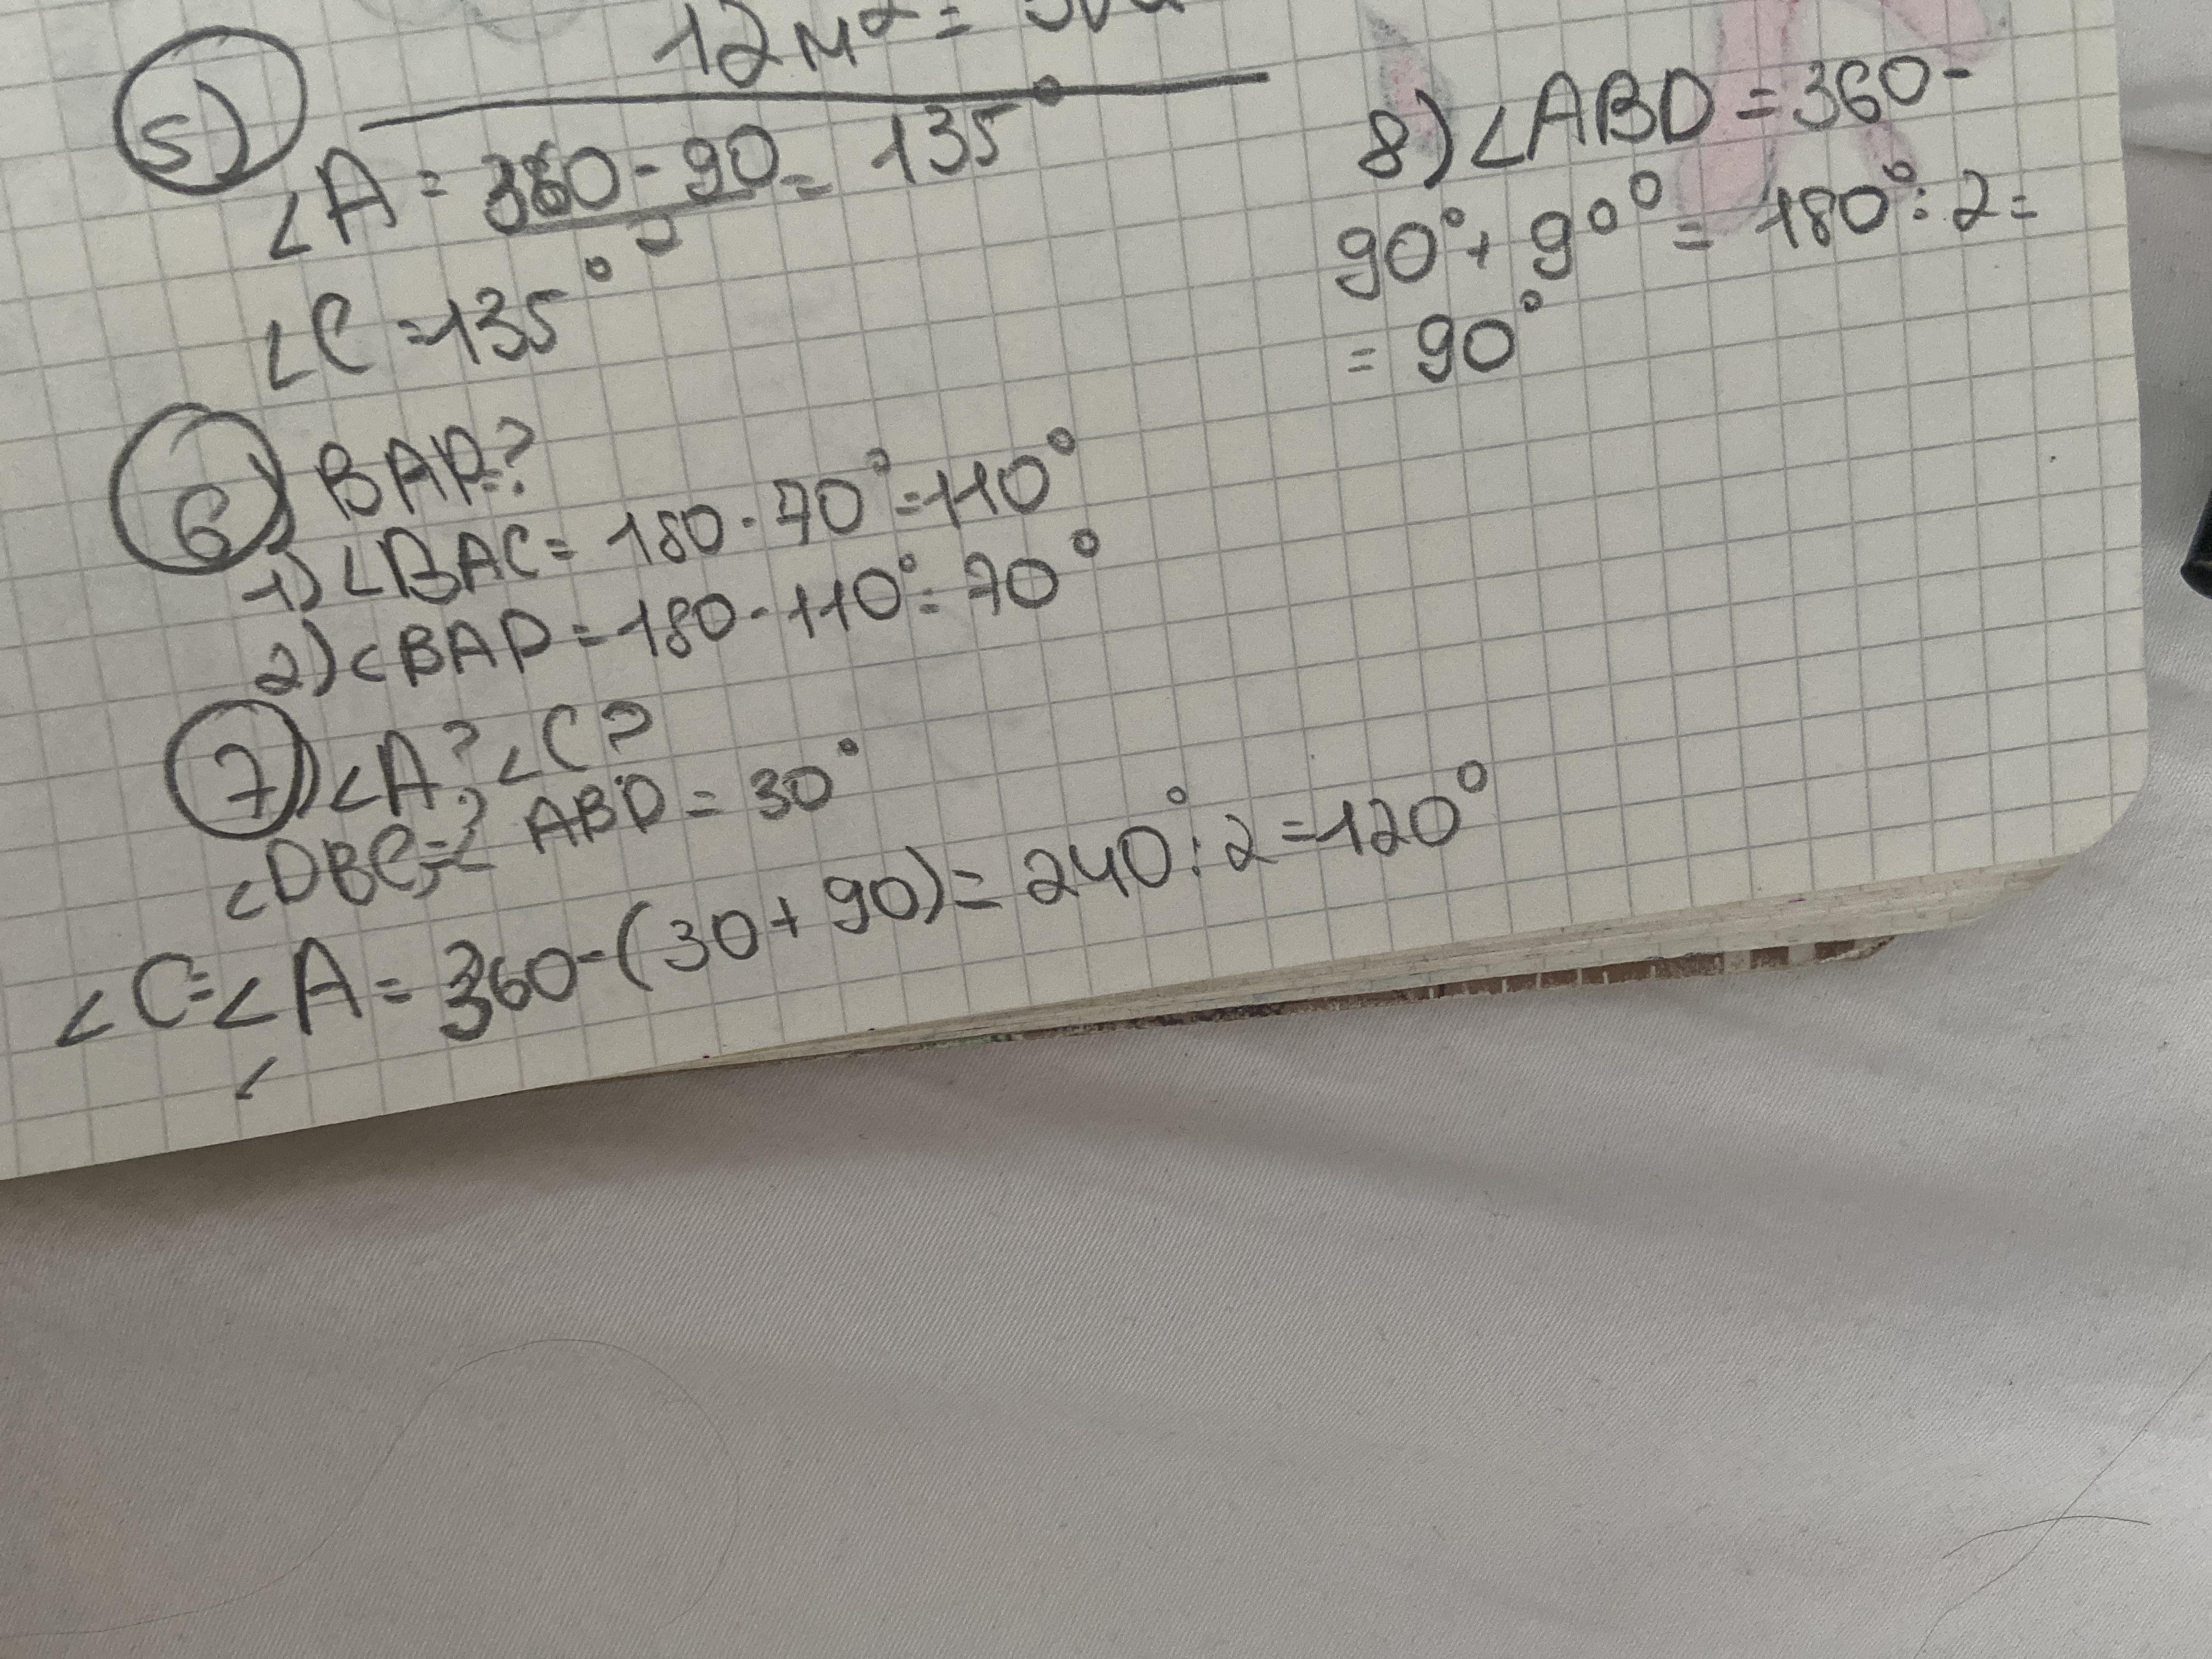 12м² =
5)
∠A = 360 - 90 / 2 = 135°
∠C = 135°
6) BAD = ?
1) ∠BAC = 180 - 70° = 110°
2) ∠BAD = 180 - 110° = 70°
7) ∠A? ∠C?
∠DBC = ∠ABD = 30°
∠C = ∠A = 360 - (30 + 90) = 240° : 2 = 120°
∠
8) ∠ABD = 360 -
90° + 90° = 180° : 2 =
= 90°